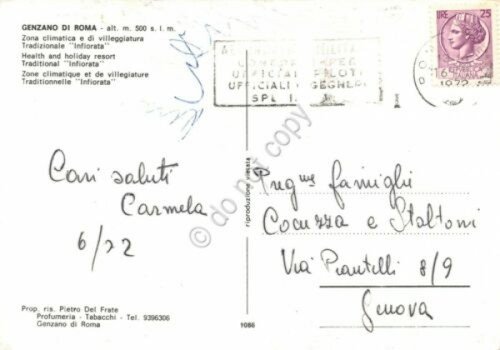 GENZANO DI ROMA - alt. m. 500 s. l. m.
Zona climatica e di villeggiatura
Tradizionale "Infiorata"
Health and holiday resort
Traditional "Infiorata"
Zone climatique et de villegiature
Traditionnelle "Infiorata"
LIRE 25
UFFICIALI PILOTI
UFFICIALI
1972
Cari saluti
Carmela
6/72
riproduzione vietata
do not copy
Preg.me famiglie
Cocuzza e Staltoni
Via Piantelli 8/9
Genova
Prop. ris. Pietro Del Frate
Profumeria - Tabacchi - Tel. 9396306
Genzano di Roma
1086